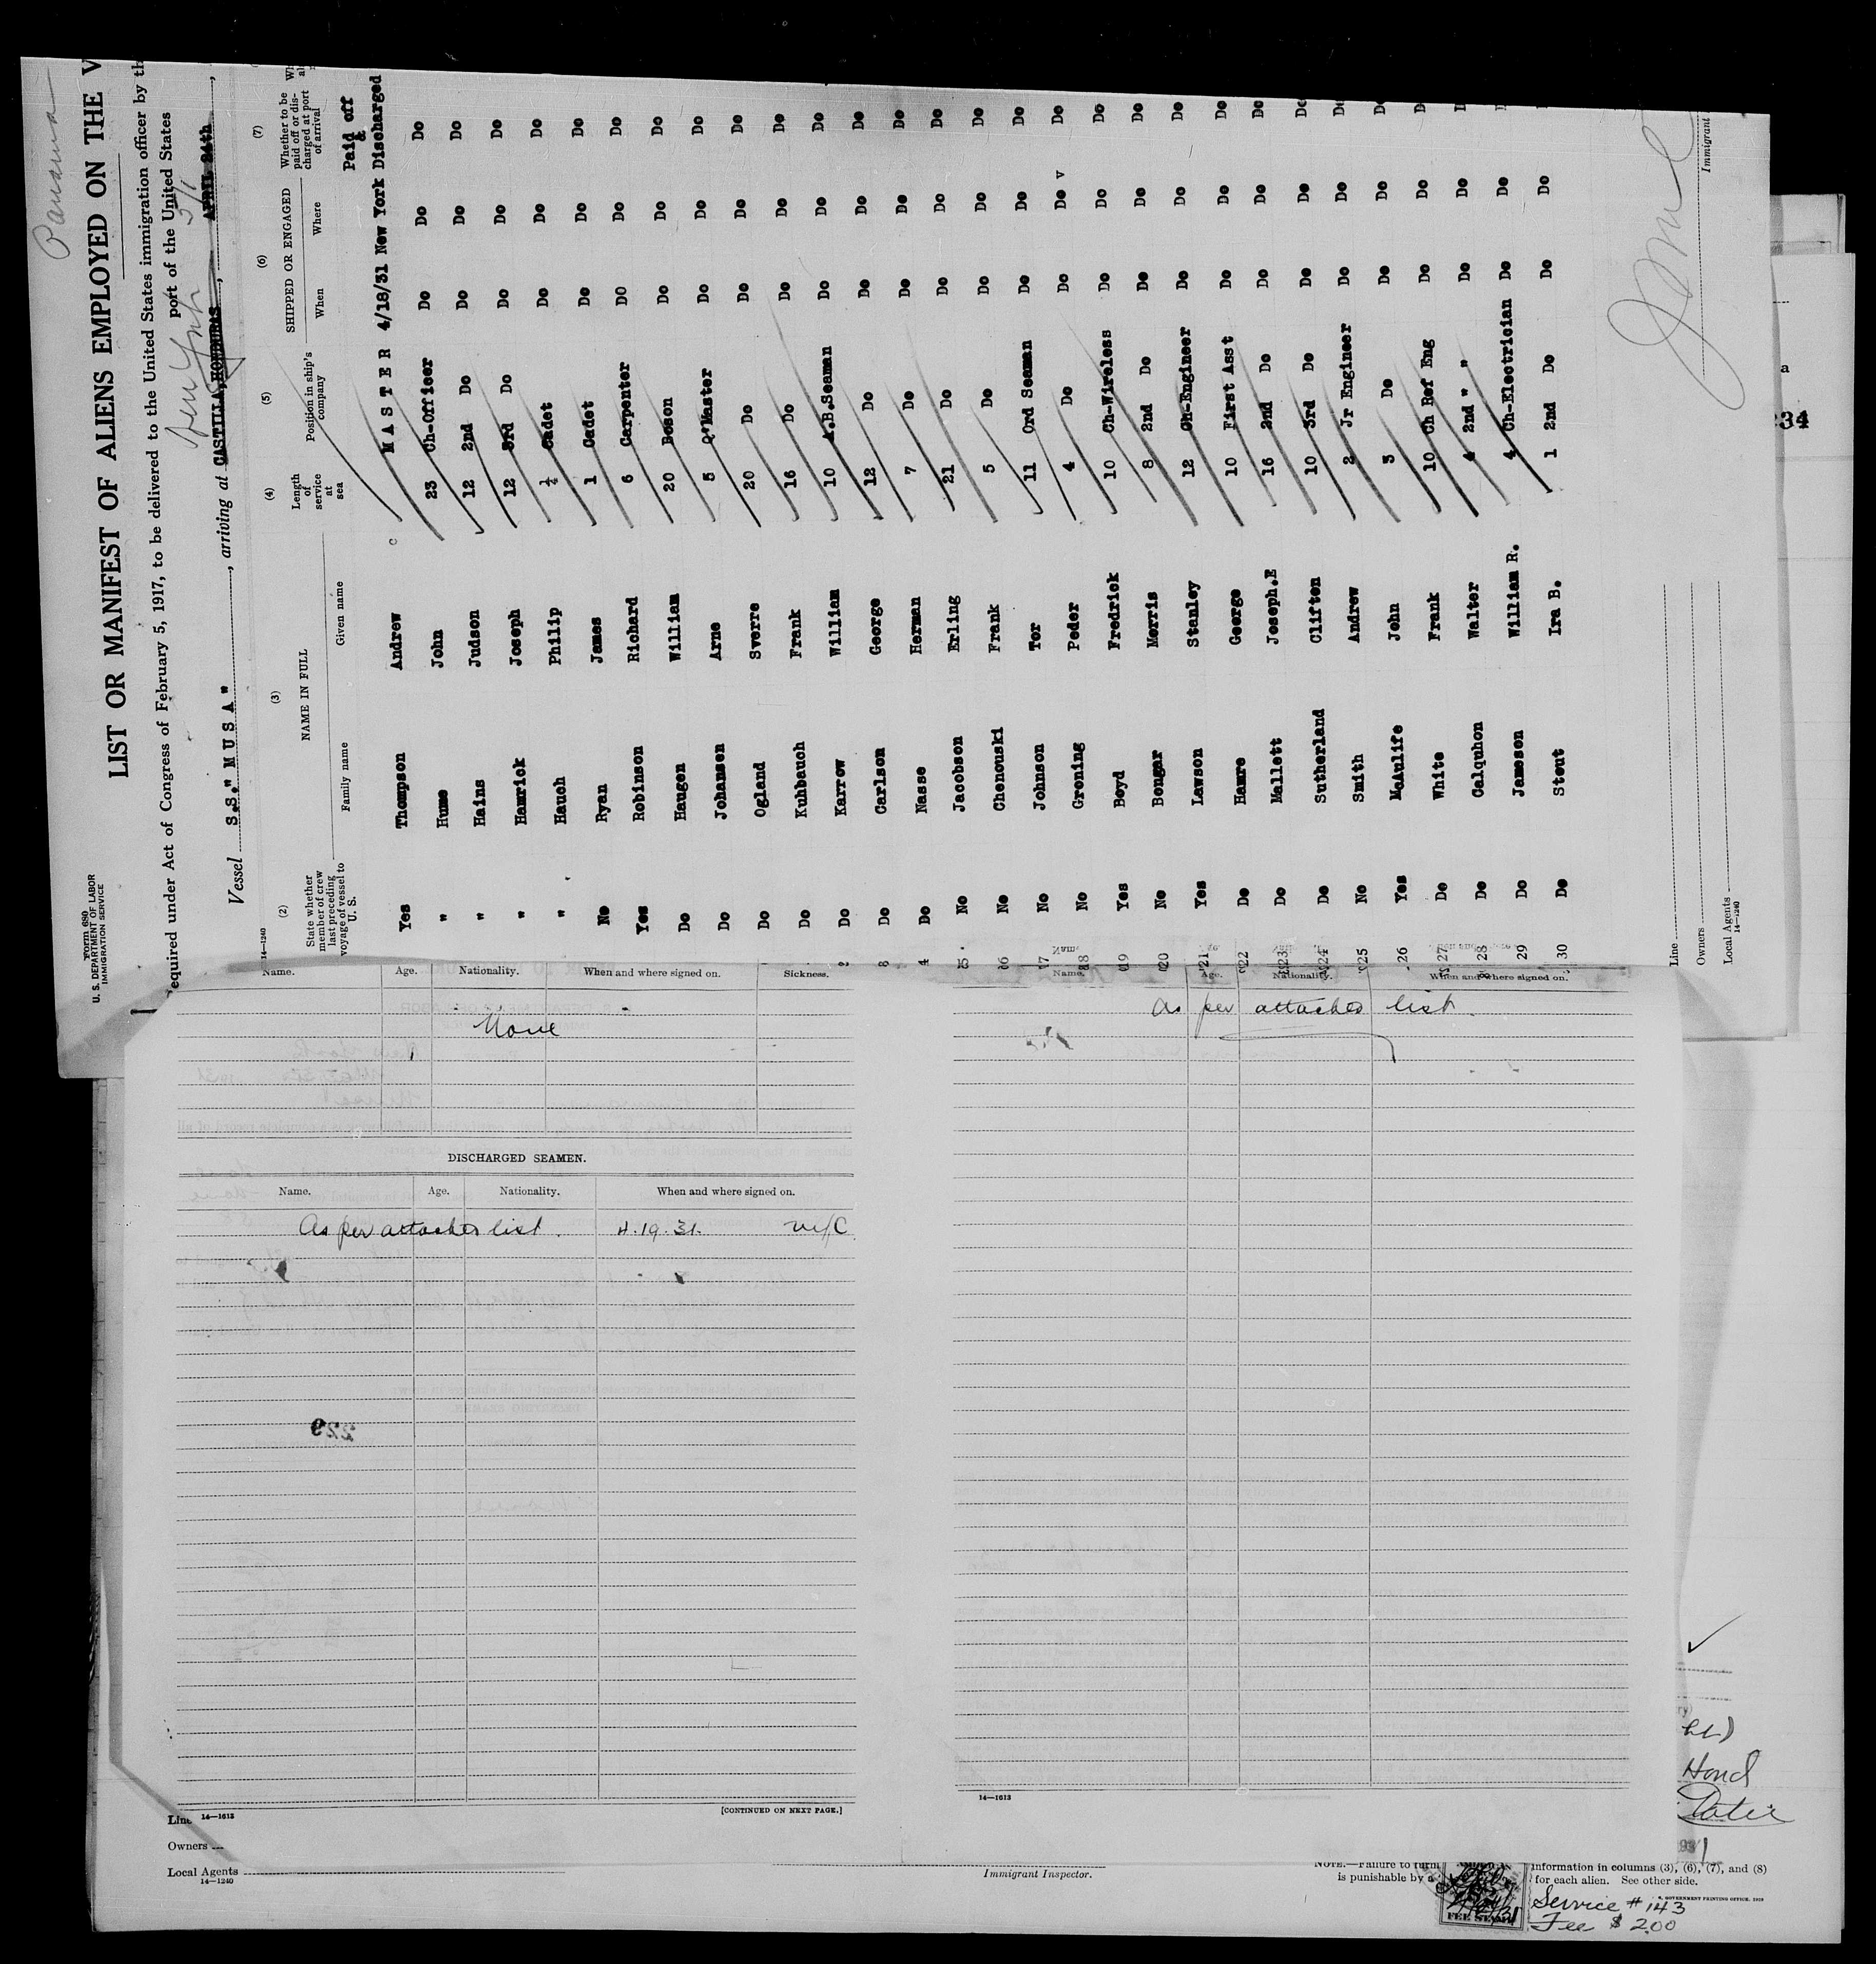 Panama
Form 680
U. S. DEPARTMENT OF LABOR
IMMIGRATION SERVICE
LIST OR MANIFEST OF ALIENS EMPLOYED ON THE V
equired under Act of Congress of February 5, 1917, to be delivered to the United States immigration officer by th
port of the United States
New York 5/1
Vessel S.S." M U S A ", arriving at CASTILLA, HONDURAS, APRIL 24th,
14—1240
(2) (3) (4) (5) (6) (7)
State whether member of crew last preceding voyage of vessel to U. S.
NAME IN FULL
Family name Given name
Length of service at sea
Position in ship's company
SHIPPED OR ENGAGED
When Where
Whether to be paid off or discharged at port of arrival
Paid off
&
Yes Thompson Andrew M A S T E R 4/18/31 New York Discharged
" Hume John 23 Ch-Officer Do Do Do
" Hains Judson 12 2nd Do Do Do Do
" Hamrick Joseph 12 3rd Do Do Do Do
" Hauch Philip ½ Cadet Do Do Do
No Ryan James 1 Cadet Do Do Do
Yes Robinson Richard 6 Carpenter DO Do Do
Do Haugen William 20 Boson Do Do Do
Do Johansen Arne 5 Q'Master Do Do Do
Do Ogland Sverre 20 Do Do Do Do
Do Kuhbauch Frank 16 Do Do Do Do
2 Do Karrow William 10 A.B.Seaman Do Do Do
3 Do Carlson George 12 Do Do Do Do
4 Do Nasse Herman 7 Do Do Do Do
5 No Jacobson Erling 21 Do Do Do Do
6 No Chenouski Frank 5 Do Do Do Do
7 No Johnson Tor 11 Ord Seaman Do Do Do
18 No Groning Peder 4 Do Do Do v Do
19 Yes Boyd Fredrick 10 Ch-Wireless Do Do Do
20 No Bongar Morris 8 2nd Do Do Do Do
21 Yes Lawson Stanley 12 Ch-Engineer Do Do Do
22 Do Hamre George 10 First Asst Do Do Do
23 Do Mallett Joseph.E 16 2nd Do Do Do Do
24 Do Sutherland Clifton 10 3rd Do Do Do Do
25 No Smith Andrew 2 Jr Engineer Do Do Do
26 Yes McAulife John 3 Do Do Do Do
27 Do White Frank 10 Ch Ref Eng Do Do
28 Do Calquhon Walter 4 2nd " " Do Do
29 Do Jameson William R. 4 Ch-Electrician Do Do
30 Do Stout Ira B. 1 2nd Do Do Do
Line
Owners
Local Agents
14—1240
Immigrant
34
Name. Age. Nationality. When and where signed on. Sickness.
None
DISCHARGED SEAMEN.
Name. Age. Nationality. When and where signed on.
As per attached list. 4.19.31. NYC
229
14—1613
[CONTINUED ON NEXT PAGE.]
Name. Age. Nationality. When and where signed on.
As per attached list.
14—1613
Line
Owners
Local Agents
14—1240
Immigrant Inspector.
NOTE.—Failure to furn
is punishable by a
information in columns (3), (6), (7), and (8)
for each alien. See other side.
GOVERNMENT PRINTING OFFICE
FEE STAMP
Service # 143
Fee $ 2.00
Hond